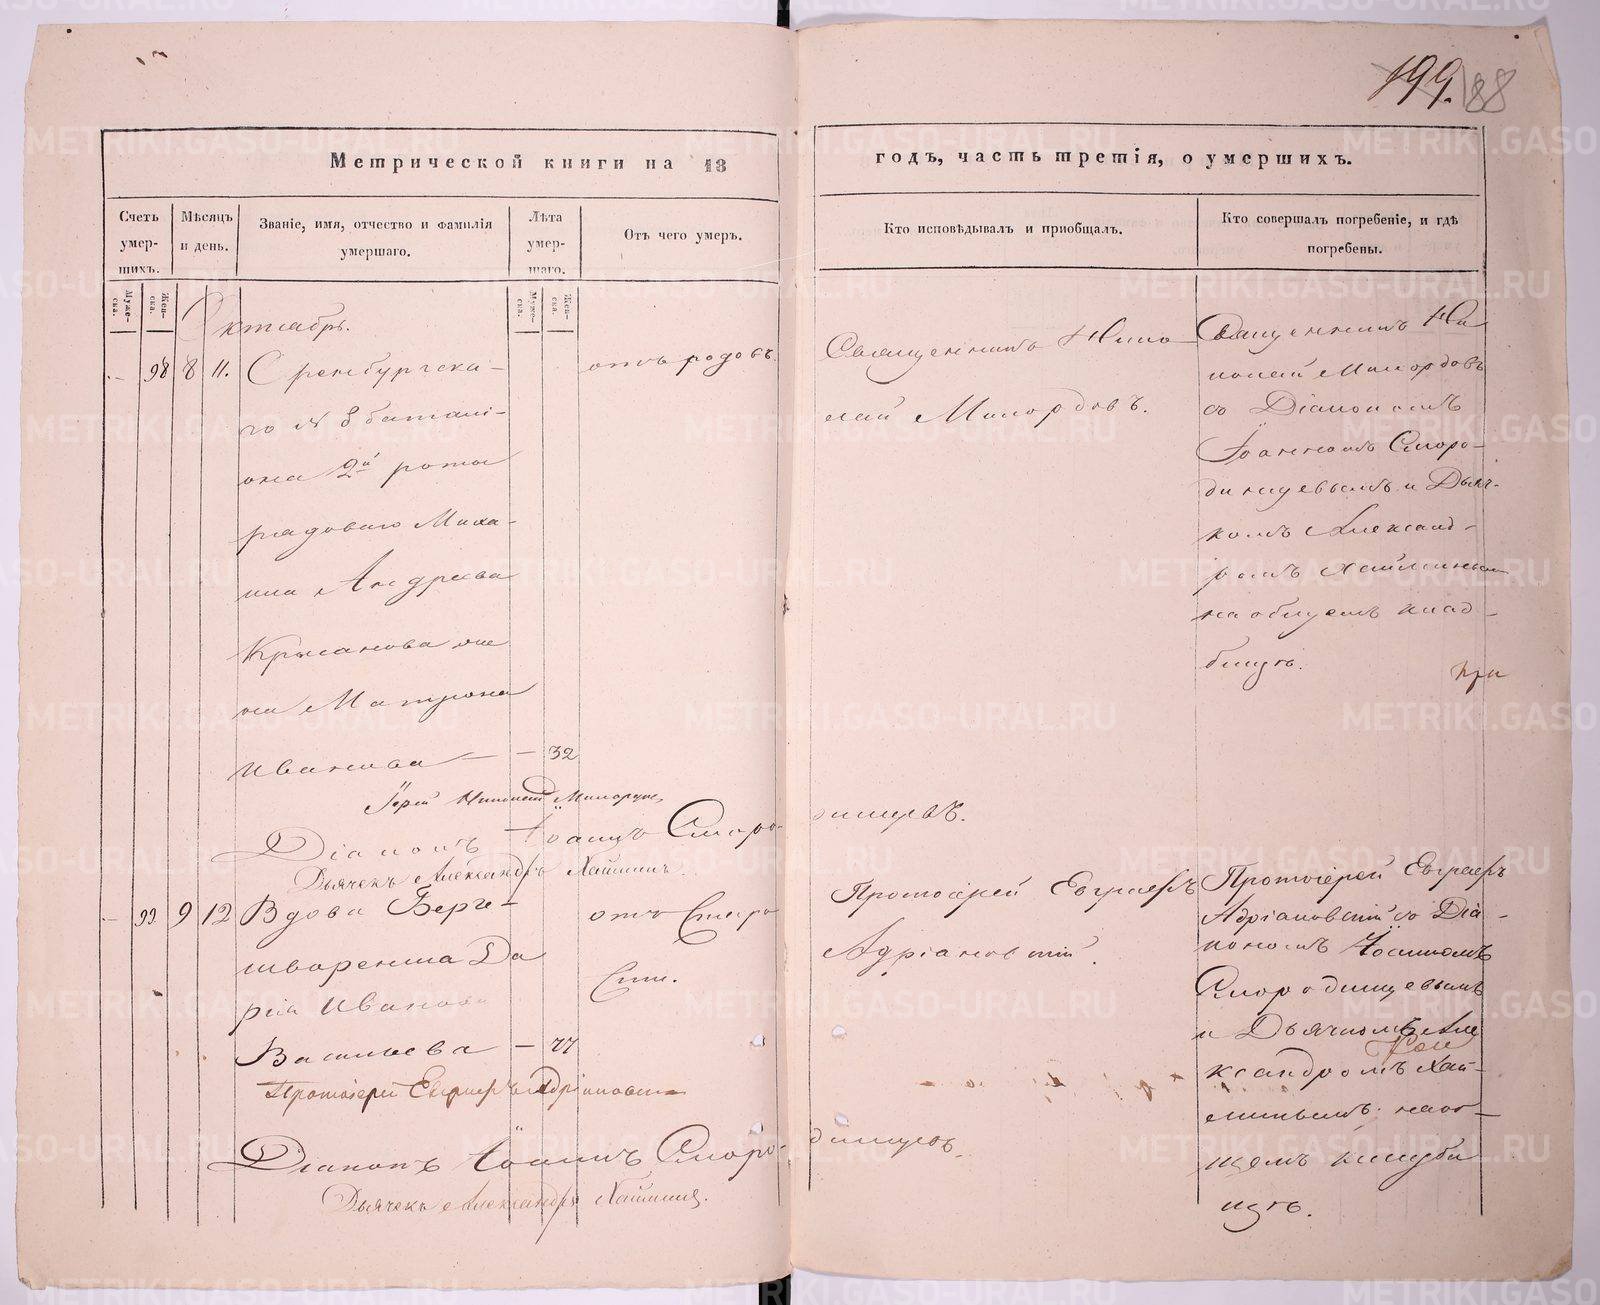 199. 188
Метрической книги на 18 годъ, часть третія, о умершихъ.
Счеть умер-шихъ.
Мѣсяцъ и день.
Званіе, имя, отчество и фамилія умершаго.
Лѣта умер-шаго.
Отъ чего умеръ.
Кто исповѣдывалъ и пріобщалъ.
Кто совершалъ погребеніе, и гдѣ погребены.
Муже-ска.
Жен-ска.
Муже-ска.
Жен-ска.
Октябрь.
98 8 11. Оренбургска-
го № 8 баталі-
она 2й роты
рядоваго Миха-
ила Андреева
Крысанова же
на Матрона
Иванова — — 32
отъ родовъ
Священникъ Нико
лай Милордовъ.
Священникъ Ни
колай Милордовъ
со Діакономъ
Іоанномъ Сморо-
динцевымъ и Дьяч-
комъ Александ-
ромъ Хайминымъ
на общемъ клад-
бищѣ.
при
Іерей Николай Милордовъ
Діаконъ Іоаннъ Сморо-динцевъ.
Дьячекъ Александръ Хайминъ.
— 99 9 12 Вдова Берге-
шворенша Да
рія Иванова
Васильева — 77
отъ Старо
сти.
Протоіерей Евграфъ
Адріановскій.
Протоіерей Евграфъ
Адріановскій со Діа-
кономъ Іоанномъ
Смородинцевымъ
и Дьячкомъ Але
ксандромъ Хай-
минымъ на об-
щемъ кладби
щѣ.
Протоіерей Евграфъ Адріановскій
Діаконъ Іоаннъ Сморо-динцевъ.
Дьячекъ Александръ Хайминъ.
METRIKI.GASO-URAL.RU